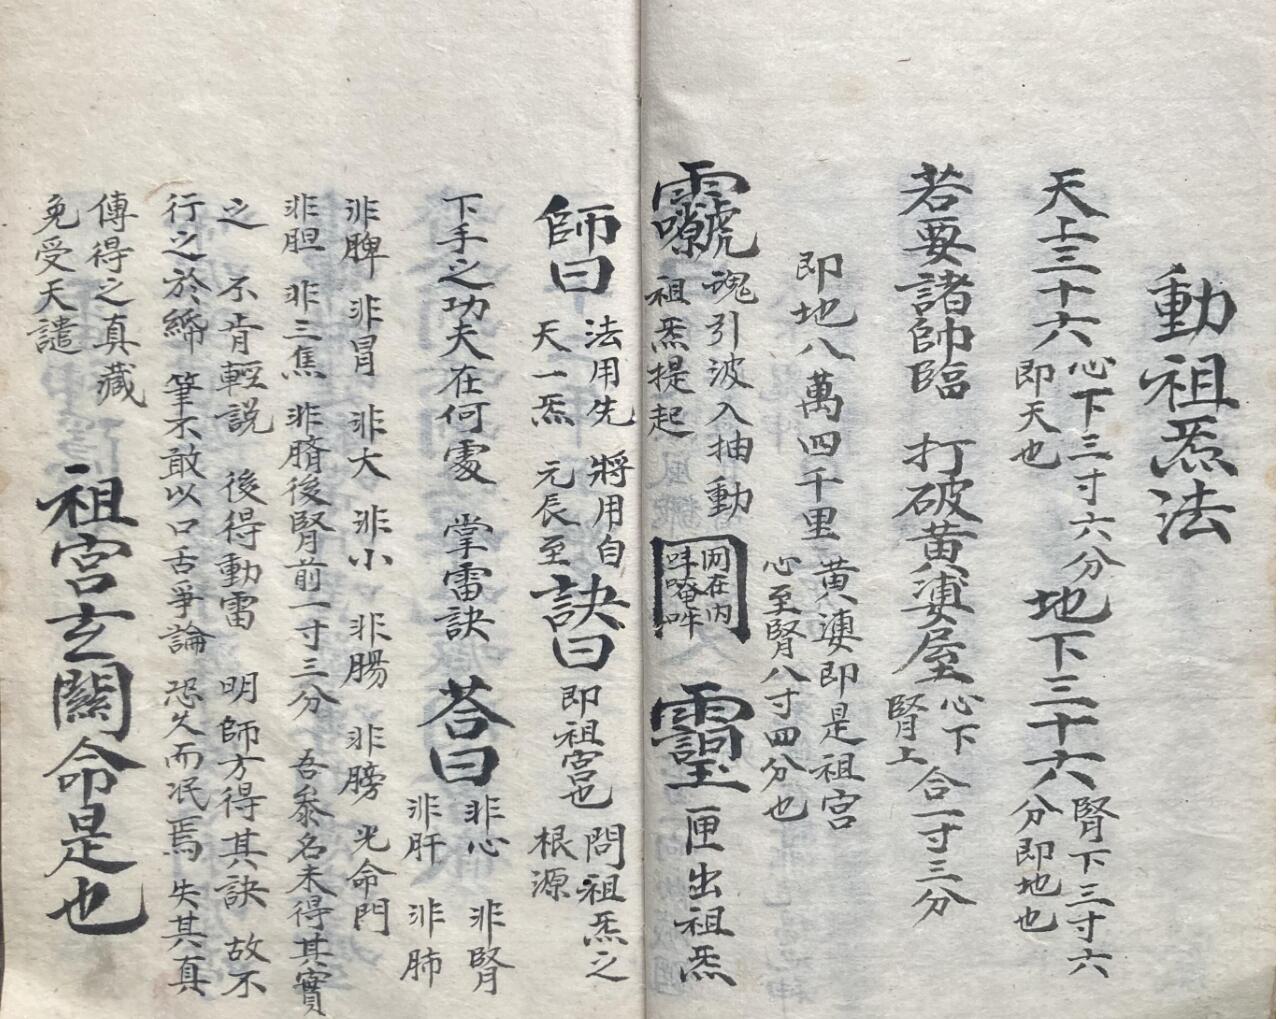 動祖炁法
天上三十六心下三寸六分即天也地下三十六腎下三寸六分即地也
若要諸師臨 打破黃婆屋心下腎上合一寸三分
即地八萬四千里黃婆即是祖宮心至腎八寸四分也
魂引波入抽動祖炁提起 罓在内吽唵吽 匣出祖炁
師曰法用先天一炁將用自元辰至訣曰即祖宮也問祖炁之根源
下手之功夫在何處 掌雷訣 荅曰非心非肝非腎非肺
非脾 非胃 非大 非小 非腸 非膀 光命門
非胆 非三焦 非臍後腎前一寸三分 吾忝名未得其實
之 不肯輕説 後得動雷 明師方得其訣 故不
行之於 筆不敢以口舌爭論 恐久而泯焉 失其真
傳得之真藏免受天譴 祖宮玄關命是也